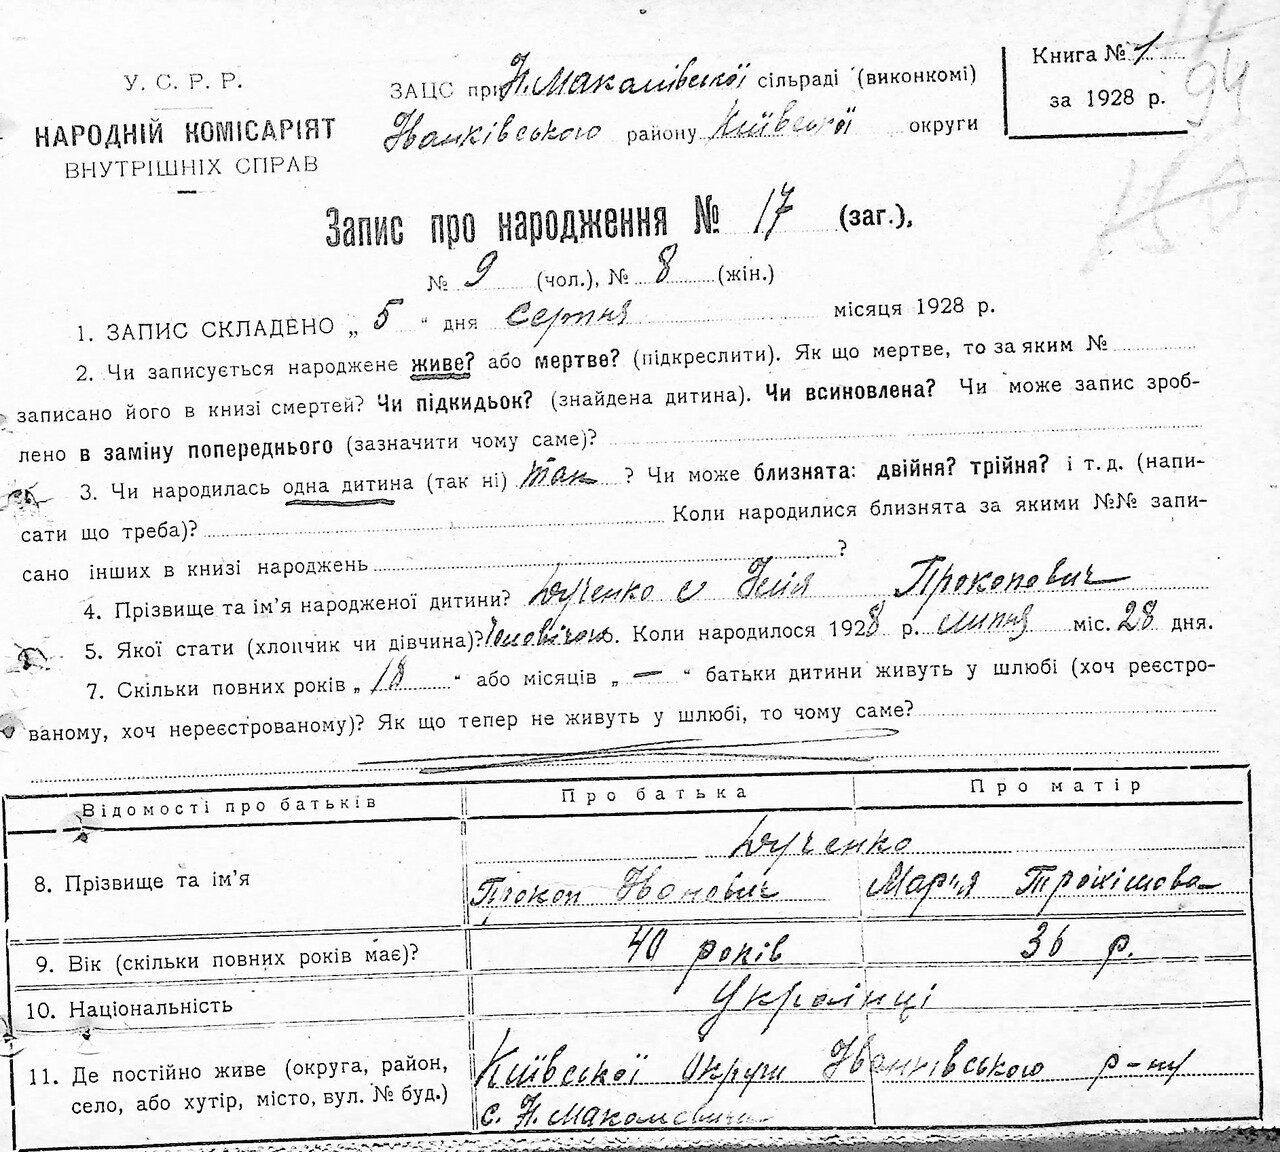 У. С. Р. Р.
НАРОДНІЙ КОМІСАРІЯТ
ВНУТРІШНІХ СПРАВ
ЗАЦС при Н. Макалівської сільраді (виконкомі)
Іванківського району Київської округи
Книга № 1
за 1928 р.
94
Запис про народження № 17 (заг.),
№ 9 (чол.), № 8 (жін.)
1. ЗАПИС СКЛАДЕНО „ 5 “ дня серпня місяця 1928 р.
2. Чи записується народжене живе? або мертве? (підкреслити). Як що мертве, то за яким №
записано його в книзі смертей? Чи підкидьок? (знайдена дитина). Чи всиновлена? Чи може запис зроб-
лено в заміну попереднього (зазначити чому саме)?
3. Чи народилась одна дитина (так ні) так ? Чи може близнята: двійня? трійня? і т. д. (напи-
сати що треба)? Коли народилися близнята за якими №№ запи-
сано інших в книзі народжень ?
4. Прізвище та ім’я народженої дитини? Ілія Прокопович
5. Якої стати (хлопчик чи дівчина)? Коли народилося 1928 р. липня міс. 28 дня.
7. Скільки повних років „ 18 “ або місяців „ — “ батьки дитини живуть у шлюбі (хоч реєстро-
ваному, хоч нереєстрованому)? Як що тепер не живуть у шлюбі, то чому саме?
Відомості про батьків Про батька Про матір
8. Прізвище та ім’я
Прокоп Іванович Марія Трохімова
9. Вік (скільки повних років має)? 40 років 36 р.
10. Національність Українці
11. Де постійно живе (округа, район,
село, або хутір, місто, вул. № буд.)
Київської Округи Іванківського р-ну
с. Н. Макалевичи